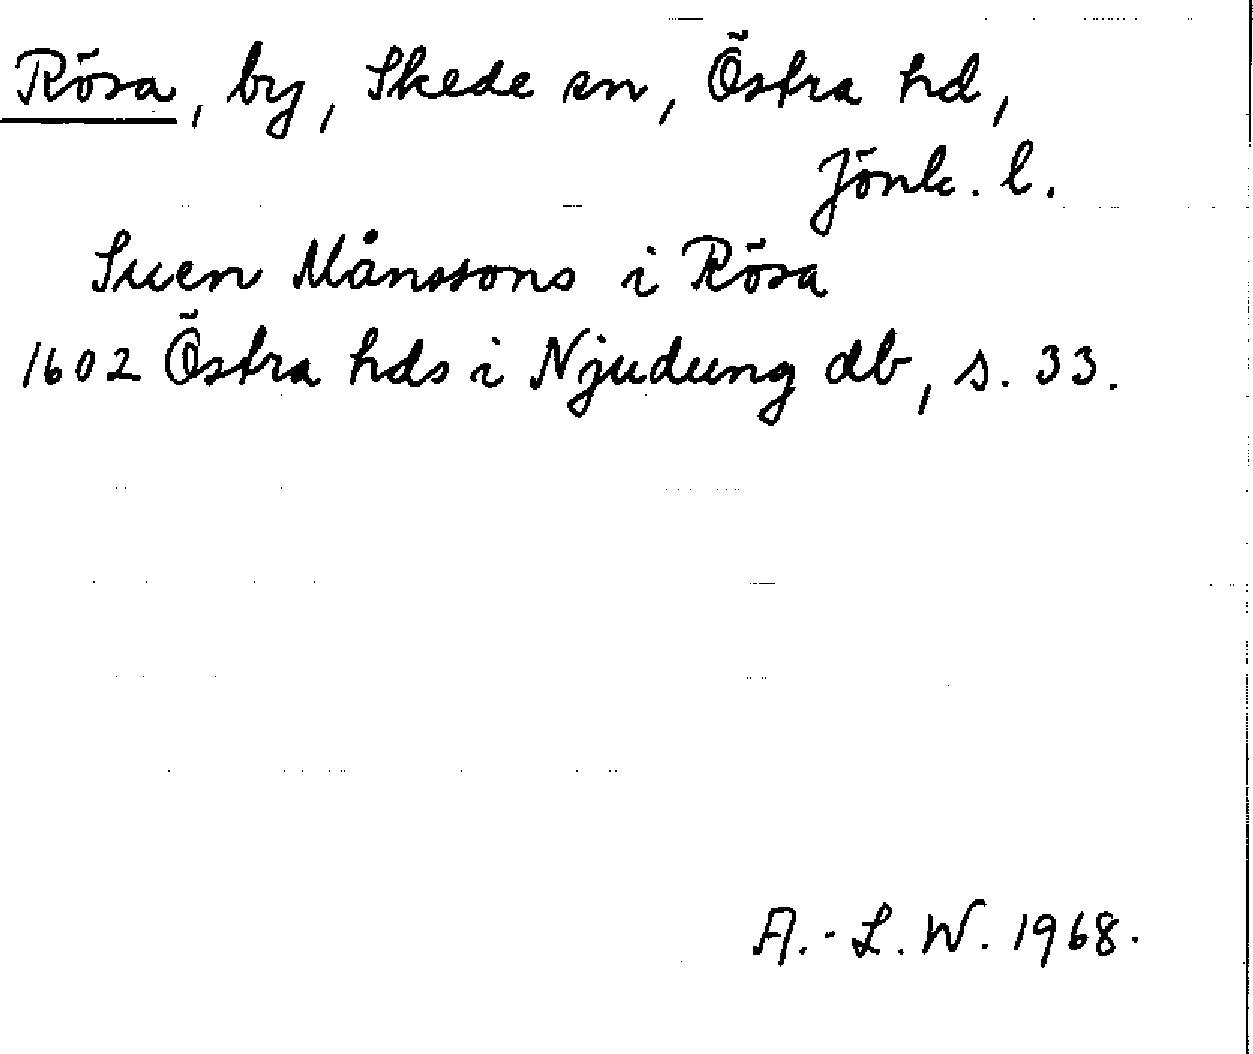 Rösa, by, Skede sn, Östra hd,
Jönk. l.
Suen Månssons i Rösa
1602 Östra hds i Njudung db, s. 33.
A.-L. W. 1968.